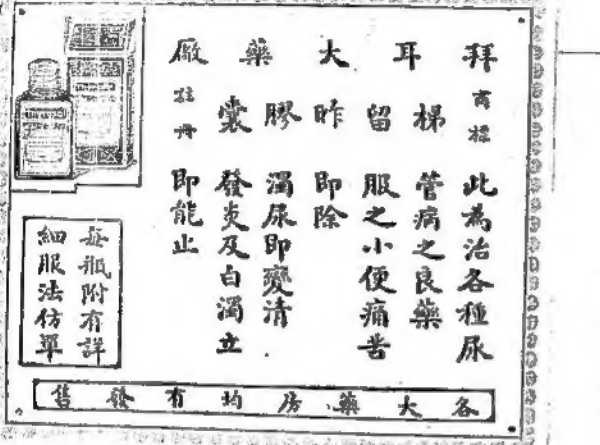 拜耳大藥廠
商標
梯留昨膠裳
註冊
此為治各種尿
管病之良藥
服之小便痛苦
即除
濁尿即變清
發炎及白濁立
即能止
每瓶附有詳
細服法仿單
各大藥房均有發售